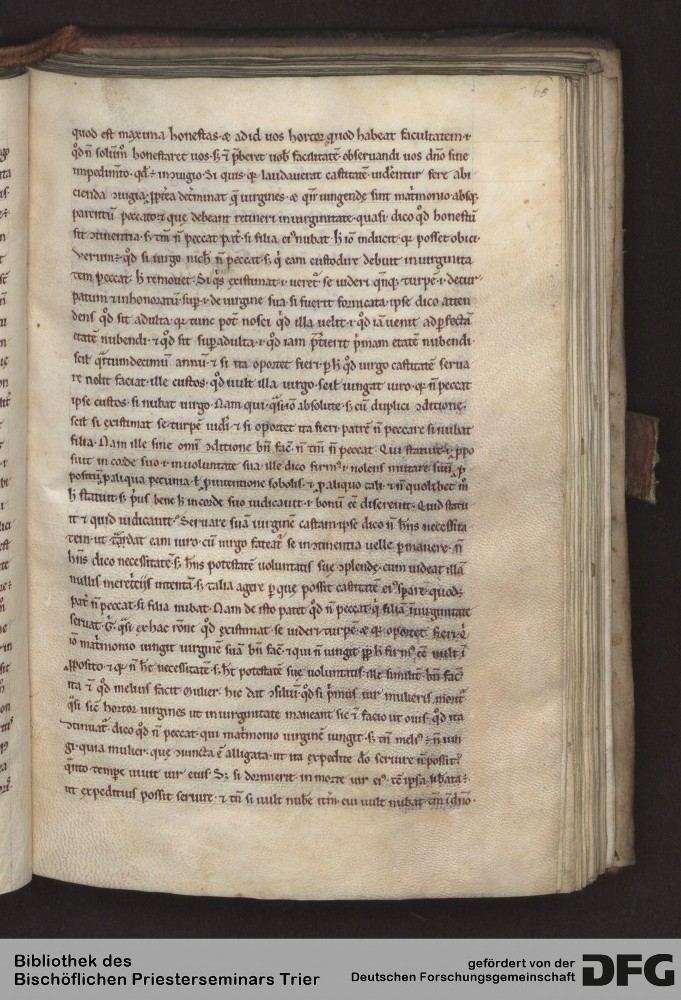 65
quod est maxima honestas. & ad id uos hortor quod habeat facultatem.
qđ ñ soluḿ honestaret uos. s; & p̃beret uob̃ facilitatē obseruandi uos dño sine
impedimto. Si quis. laudauerat castitatē uidentur fere abi
cienda determinat uirgines. & iungendę sint matrimonio absq;
parentū peccato. & quę debeant retineri in uirginitate. quasi dico qđ honestū
sit ɔtinentia. s; tm̄ ñ peccat pat̃. si filia eiꝰ nubat. ħ io inducit. posset obici.
Verum: qđ si uirgo ñ peccat. s; eam custodire debuit in uirginita
tem peccat. ħ remouet. Si q̃s existimat. se uideri turpē. i. detur
patum & inhonoratū sup̃. i. de uirgine sua si fuerit fornicata. ipse dico atten
dens qđ sit adulta. tunc pot̃ nosci qđ illa uelit. & qđ iā uenit ad ꝑfectā
etatē nubendi. & qđ sit suꝑadulta. i. qđ iam p̃terit p̃mam etatē nubendi.
scil̃ annū. & si ita oportet fieri. ꝑ ħ qđ uirgo castitatē serua
re nolit faciat ille custos. qđ uult illa uirgo. scil̃ iungat uiro. ñ peccat
ipse custos. si nubat uirgo. Nam absolute. s; cū duplici ɔditione.
scil̃ si existimat se turpē uid̃i. & si oportet ita fieri. patrē ñ peccare si nubat
filia. Nam ille sine om̃i ɔditione bñ fac̃. ñ tm̄ ñ peccat. Qui statuit. i. ꝓpo
suit in corde suo. i. in uoluntate sua. ille dico firmꝰ. i. nolens mutare suū ꝓ
positū. ꝓ aliqua pecunia. ꝓ intentione sobolis. & ꝓ aliquo tali. & ñ quolibet m̊
ħ statuit. s; p̃us bene ħ in corde suo iudicauit. i. bonū eē discreuit. Quid statu
it & quid iudicauit? Seruare suā uirginē castam. ipse dico ñ ħns necessita
tem. ut tradat eam uiro. cū uirgo fateat̃ se in ɔtinentia uelle ꝑmanere. ñ
ħns dico necessitatē. s; ħns potestatē uoluntatis suę ɔplendę. cum uideat illā
nullis meretriciis intentā. s; talia agere ꝑ quę possit castitatē eiꝰ sꝑare. quod
pat̃ ñ peccat. si filia nubat. Nam de isto patet qđ ñ peccat. q̃ filiā in uirginitate
seruat. G̃. q̃si ex hac rōne qđ existimat se uideri turpē. & oportet fieri. q̃
io matrimonio iungit uirginē suā bñ fac̃. & qui ñ iungit firmꝰ eē uult
ꝓposito. & ñ ħt necessitatē. s; ħt potestatē suę uoluntatis. ille similit̃ bñ fac̃
ita & qđ melius facit. Mulier. hic dat ɔsiliū. qđ si p̃mus uir mulieris moriť
q̃si sic̃ hortor uirgines ut in uirginitate maneant. sic & facio ut ouis. qđ ita
ɔtinuat̃. dico qđ ñ peccat qui matrimonio uirginē iungit. s; tm̄ meliꝰ: ñ iun
git. quia mulier quę iuncta ē. alligata. ut ita expedite dō seruire ñ possit.
q̃nto tempore uiuit uir eius. Qđ si dormierit in morte uir eiꝰ. tē ipsa libata:
ut expeditius possit seruire. & tm̄ si uult nubē itm̄. cui uult nubat. tm̄ ī dño.
Bibliothek des
Bischöflichen Priesterseminars Trier
gefördert von der
Deutschen Forschungsgemeinschaft
DFG